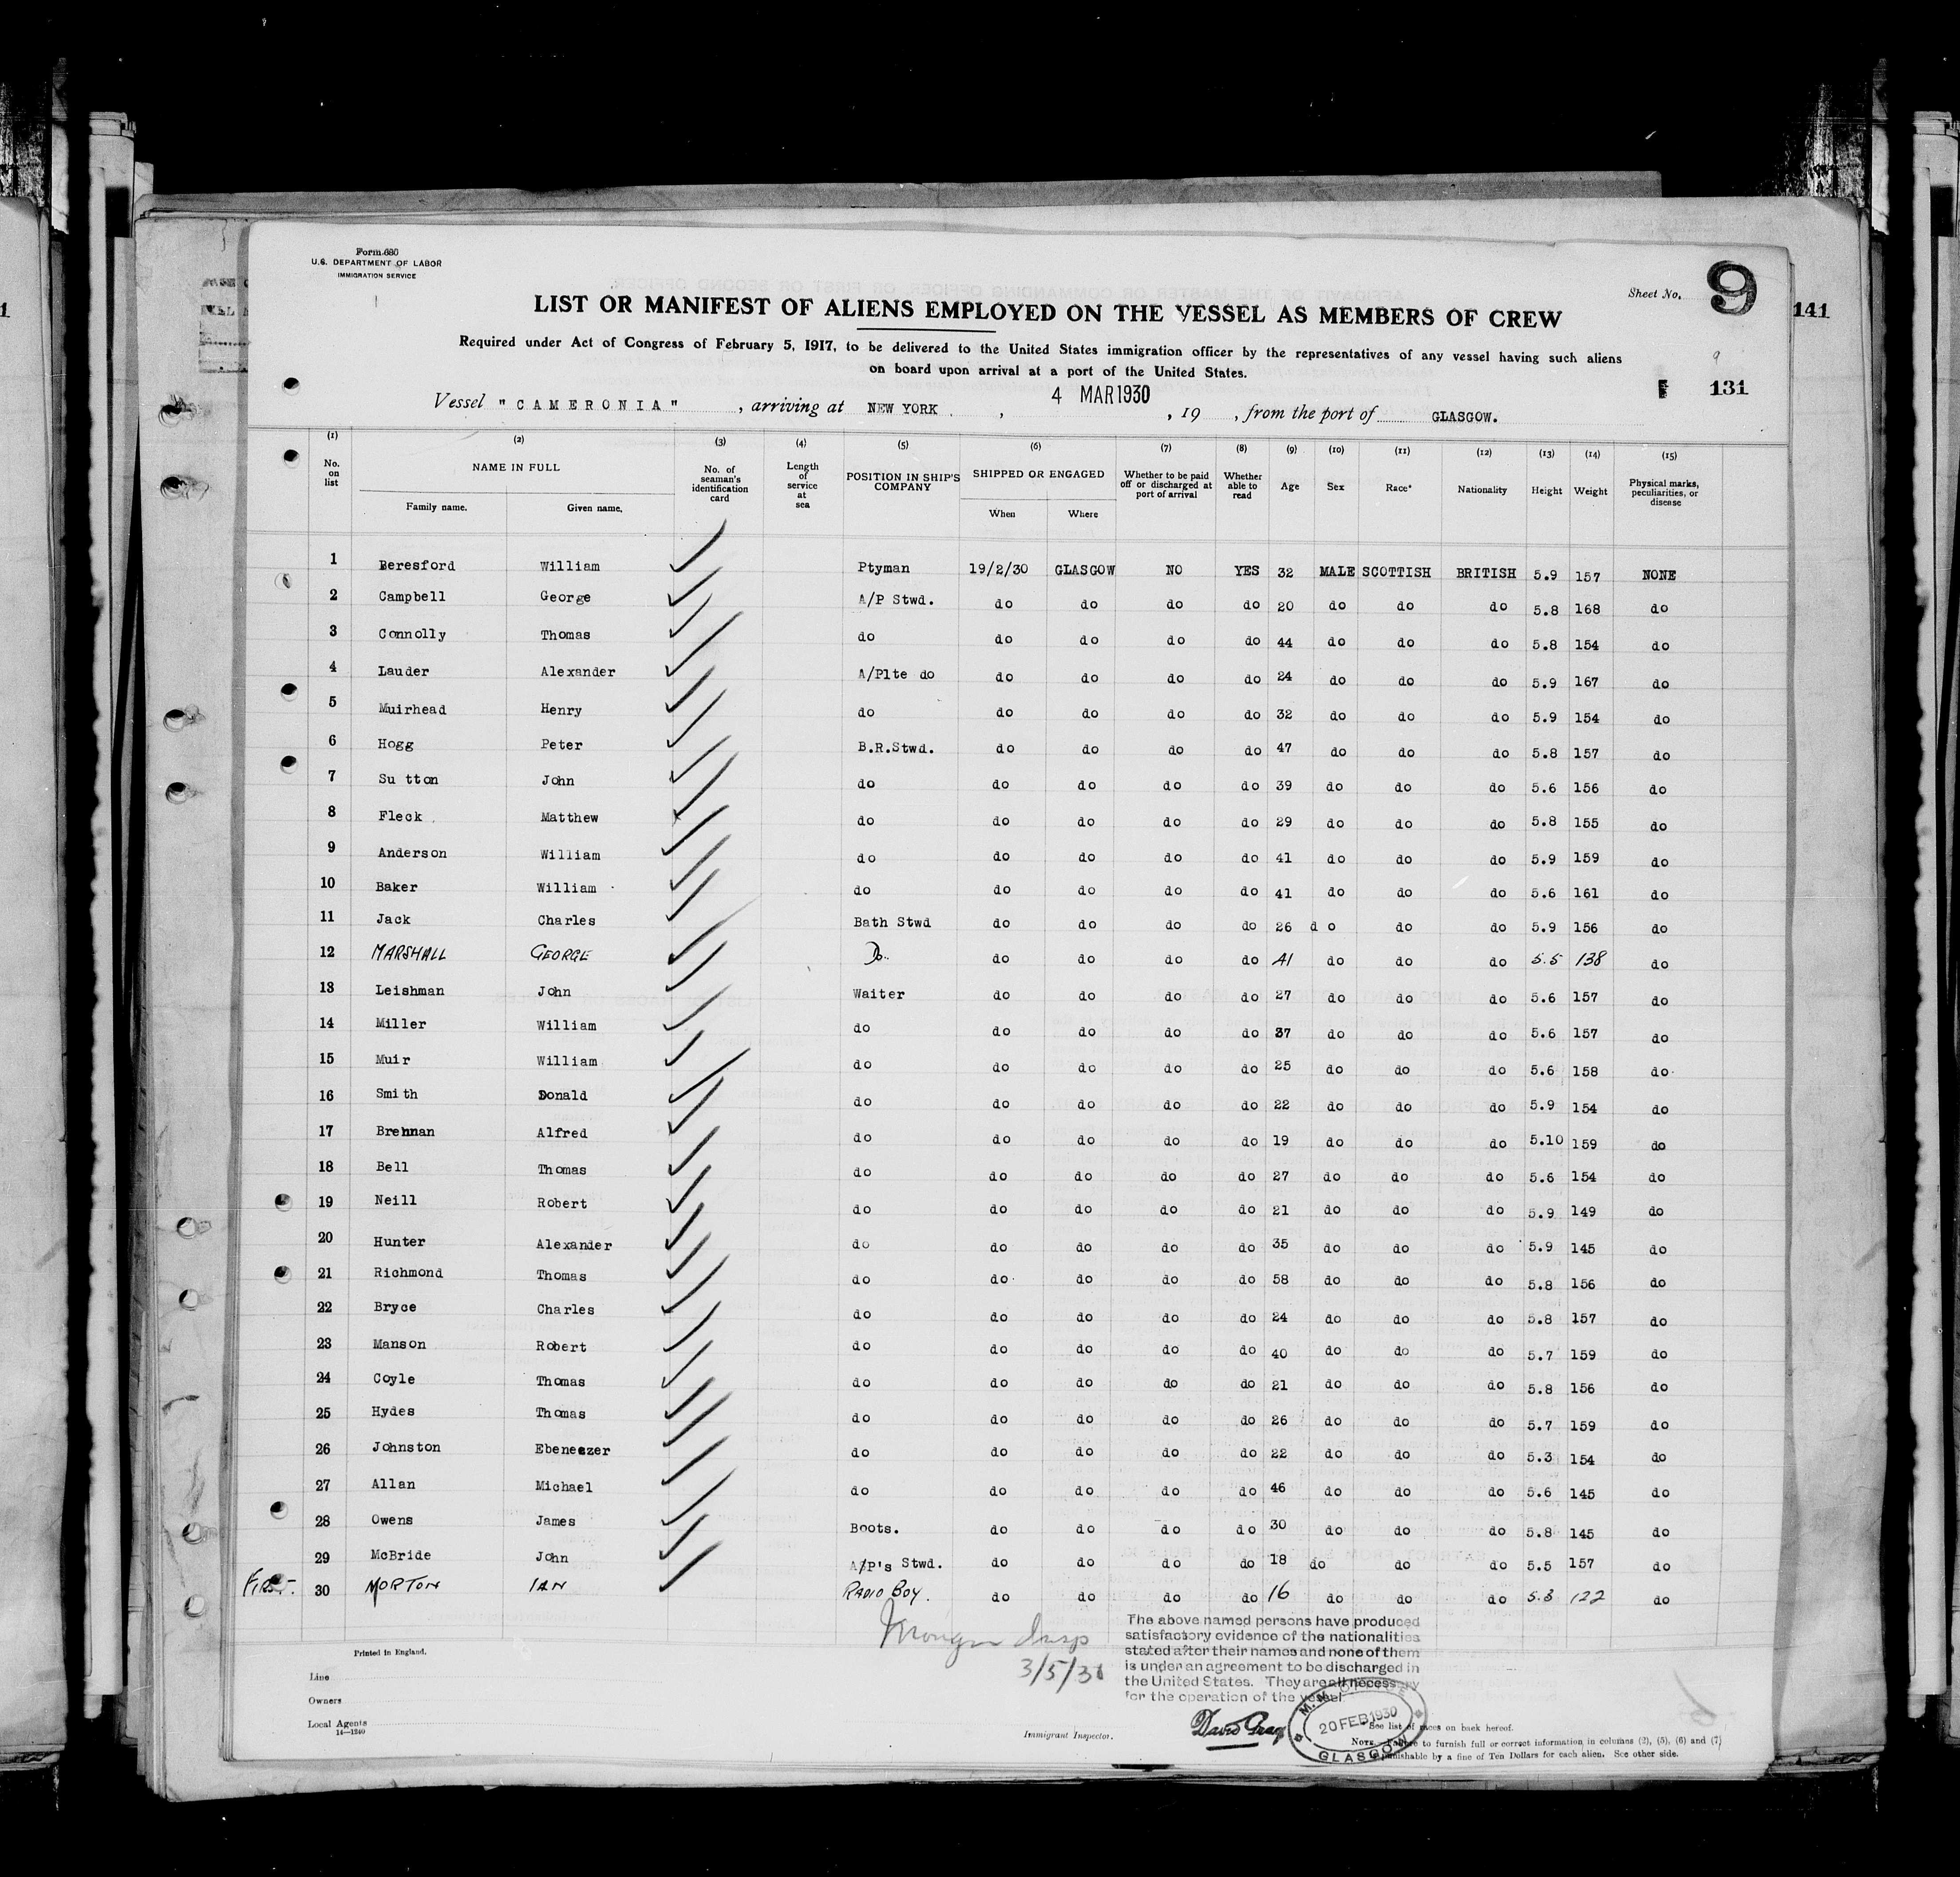 Form 680
U.S. DEPARTMENT OF LABOR
IMMIGRATION SERVICE
Sheet No. 9
141
LIST OR MANIFEST OF ALIENS EMPLOYED ON THE VESSEL AS MEMBERS OF CREW
Required under Act of Congress of February 5, 1917, to be delivered to the United States immigration officer by the representatives of any vessel having such aliens
on board upon arrival at a port of the United States.
9
131
Vessel "CAMERONIA", arriving at NEW YORK, 4 MAR 1930, 19 , from the port of GLASGOW.
(1) (2) (3) (4) (5) (6) (7) (8) (9) (10) (11) (12) (13) (14) (15)
No. on list NAME IN FULL Family name. Given name. No. of seaman's identification card Length of service at sea POSITION IN SHIP'S COMPANY SHIPPED OR ENGAGED When Where Whether to be paid off or discharged at port of arrival Whether able to read Age Sex Race* Nationality Height Weight Physical marks, peculiarities, or disease
1 Beresford William Ptyman 19/2/30 GLASGOW NO YES 32 MALE SCOTTISH BRITISH 5.9 157 NONE
2 Campbell George A/P Stwd. do do do do 20 do do do 5.8 168 do
3 Connolly Thomas do do do do do 44 do do do 5.8 154 do
4 Lauder Alexander A/Plte do do do do do 24 do do do 5.9 167 do
5 Muirhead Henry do do do do do 32 do do do 5.9 154 do
6 Hogg Peter B.R.Stwd. do do do do 47 do do do 5.8 157 do
7 Su tton John do do do do do 39 do do do 5.6 156 do
8 Fleck Matthew do do do do do 29 do do do 5.8 155 do
9 Anderson William do do do do do 41 do do do 5.9 159 do
10 Baker William do do do do do 41 do do do 5.6 161 do
11 Jack Charles Bath Stwd do do do do 26 d o do do 5.9 156 do
12 MARSHALL GEORGE Do. do do do do 41 do do do 5.5 138 do
13 Leishman John Waiter do do do do 27 do do do 5.6 157 do
14 Miller William do do do do do 37 do do do 5.6 157 do
15 Muir William do do do do do 25 do do do 5.6 158 do
16 Smith Donald do do do do do 22 do do do 5.9 154 do
17 Brennan Alfred do do do do do 19 do do do 5.10 159 do
18 Bell Thomas do do do do do 27 do do do 5.6 154 do
19 Neill Robert do do do do do 21 do do do 5.9 149 do
20 Hunter Alexander do do do do do 35 do do do 5.9 145 do
21 Richmond Thomas do do do do do 58 do do do 5.8 156 do
22 Bryce Charles do do do do do 24 do do do 5.8 157 do
23 Manson Robert do do do do do 40 do do do 5.7 159 do
24 Coyle Thomas do do do do do 21 do do do 5.8 156 do
25 Hydes Thomas do do do do do 26 do do do 5.7 159 do
26 Johnston Ebeneezer do do do do do 22 do do do 5.3 154 do
27 Allan Michael do do do do do 46 do do do 5.6 145 do
28 Owens James Boots. do do do do 30 do do do 5.8 145 do
29 McBride John A/P's Stwd. do do do do 18 do do do 5.5 157 do
FIRST. 30 MORTON IAN RADIO BOY. do do do do 16 do do do 5.3 122 do
Insp
3/5/30
The above named persons have produced
satisfactory evidence of the nationalities
stated after their names and none of them
is under an agreement to be discharged in
the United States. They are all necessary
for the operation of the vessel
Printed in England.
Line
Owners
Local Agents
14—1240
Immigrant Inspector.
David Gray
20 FEB 1930
GLASGOW
*See list of races on back hereof.
NOTE.—Failure to furnish full or correct information in columns (2), (5), (6) and (7)
punishable by a fine of Ten Dollars for each alien. See other side.